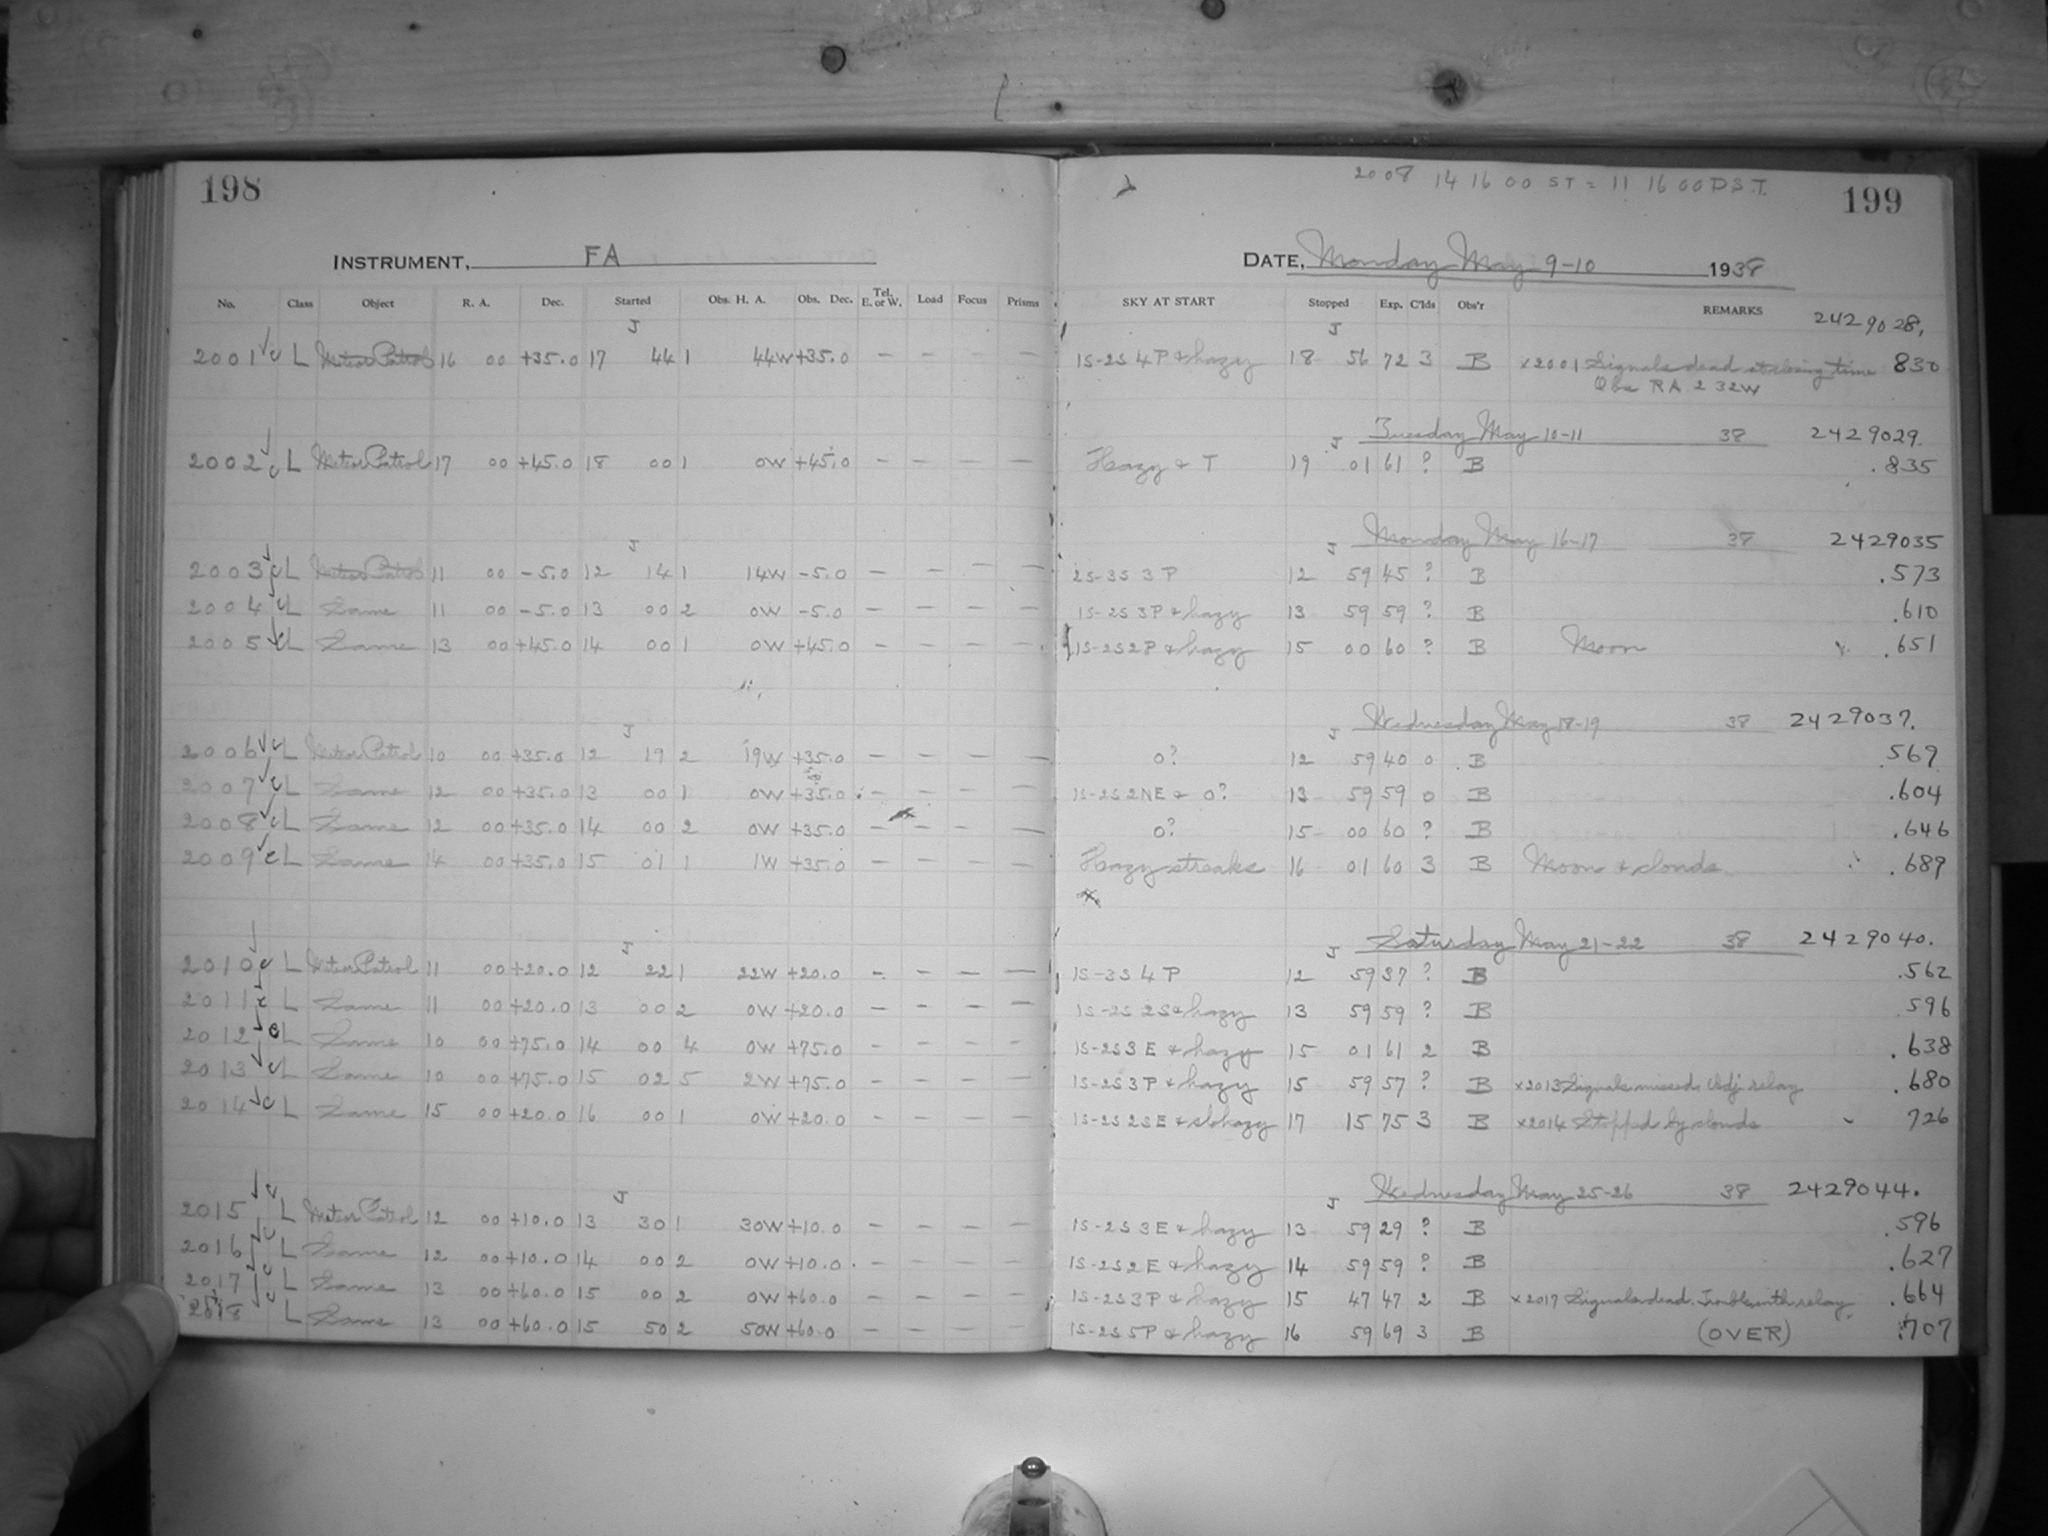 198
INSTRUMENT, FA
No. Class Object R. A. Dec. Started Obs. H. A. Obs. Dec. Tel. E. or W. Load Focus Prisms
J
2001 c L Meteor Patrol 16 00 +35.0 17 44 1 44W +35.0 — — — —
2002 c L Meteor Patrol 17 00 +45.0 18 00 1 0W +45.0 — — — —
J
2003 c L Meteor Patrol 11 00 -5.0 12 14 1 14W -5.0 — — — —
2004 c L Same 11 00 -5.0 13 00 2 0W -5.0 — — — —
2005 c L Same 13 00 +45.0 14 00 1 0W +45.0 — — — —
J
2006 c L Meteor Patrol 10 00 +35.0 12 19 2 19W +35.0 — — — —
2007 c L Same 12 00 +35.0 13 00 1 0W +35.0 — — — —
2008 c L Same 12 00 +35.0 14 00 2 0W +35.0 — — — —
2009 c L Same 14 00 +35.0 15 01 1 1W +35.0 — — — —
J
2010 c L Meteor Patrol 11 00 +20.0 12 22 1 22W +20.0 — — — —
2011 c L Same 11 00 +20.0 13 00 2 0W +20.0 — — — —
2012 c L Same 10 00 +75.0 14 00 4 0W +75.0 — — — —
2013 c L Same 10 00 +75.0 15 02 5 2W +75.0 — — — —
2014 c L Same 15 00 +20.0 16 00 1 0W +20.0 — — — —
J
2015 c L Meteor Patrol 12 00 +10.0 13 30 1 30W +10.0 — — — —
2016 c L Same 12 00 +10.0 14 00 2 0W +10.0 — — — —
2017 c L Same 13 00 +60.0 15 00 2 0W +60.0 — — — —
2018 c L Same 13 00 +60.0 15 50 2 50W +60.0 — — — —
2008 14 16 00 ST = 11 16 00 DST.
199
DATE, Monday May 9-10 1938
SKY AT START Stopped Exp. C'lds Obs'r REMARKS
J 2429028.
1S-2S 4P & hazy 18 56 72 3 B x2001 Signals dead at closing time 830
Obs RA 2 32W
J Tuesday May 10-11 38 2429029.
Hazy & T 19 01 61 ? B .835
J Monday May 16-17 38 2429035
2S-3S 3P 12 59 45 ? B .573
1S-2S 3P & hazy 13 59 59 ? B .610
1S-2S 2P & hazy 15 00 60 ? B Moon .651
J Wednesday May 18-19 38 2429037.
0? 12 59 40 0 B .569
1S-2S 2NE & 0? 13 59 59 0 B .604
0? 15 00 60 ? B .646
Hazy streaks 16 01 60 3 B Moon & clouds .689
J Saturday May 21-22 38 2429040.
1S-3S 4P 12 59 37 ? B .562
1S-2S 2S & hazy 13 59 59 ? B 596
1S-2S 3E & hazy 15 01 61 2 B .638
1S-2S 3P & hazy 15 59 57 ? B x2013 Signals missed. Adj relay .680
1S-2S 2SE & sl hazy 17 15 75 3 B x2014 Stopped by clouds 726
J Wednesday May 25-26 38 2429044.
1S-2S 3E & hazy 13 59 29 ? B .596
1S-2S 2E & hazy 14 59 59 ? B .627
1S-2S 3P & hazy 15 47 47 2 B x2017 Signals dead. Trouble with relay. .664
1S-2S 5P & hazy 16 59 69 3 B (OVER) .707